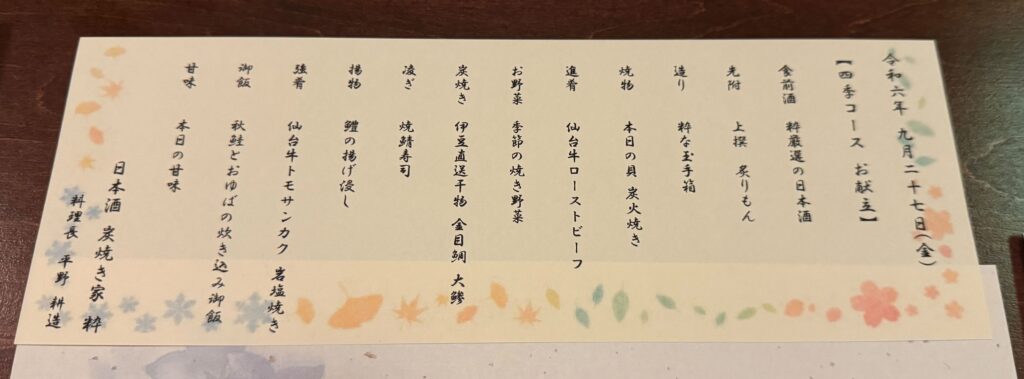 令和六年 九月二十七日(金)
【四季コース お献立】
食前酒 粋厳選の日本酒
先附 上撰 炙りもん
造り 粋な玉手箱
焼物 本日の貝 炭火焼き
進肴 仙台牛ローストビーフ
お野菜 季節の焼き野菜
炭焼き 伊豆直送干物 金目鯛 大鯵
凌ぎ 焼鯖寿司
揚物 鱧の揚げ浸し
強肴 仙台牛トモサンカク 岩塩焼き
御飯 秋鮭とおゆばの炊き込み御飯
甘味 本日の甘味
日本酒 炭焼き家 粋
料理長 平野 耕造